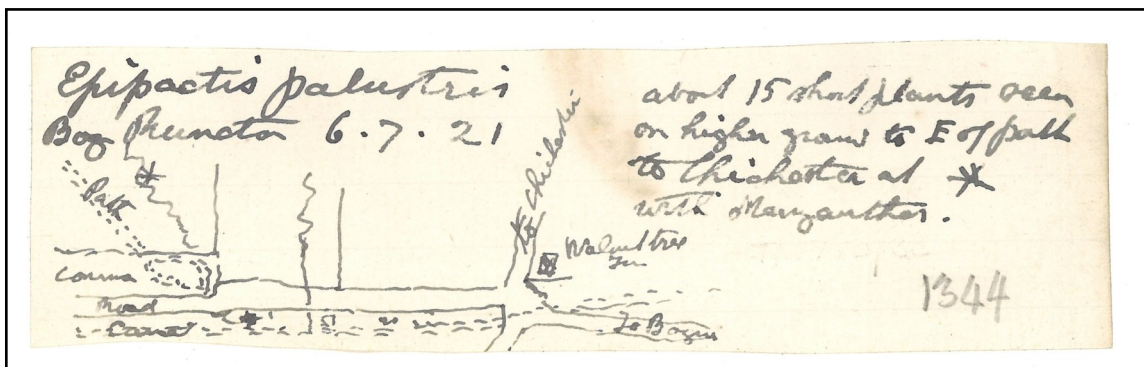 Epipactis palustris
Bog Runcton 6.7.21
about 15 short plants seen
on higher ground to E of path
to Chichester at
with Menyanthes.
Path
to Chichester
Walnut tree
Inn
Road
Canal
To Bognor
1344